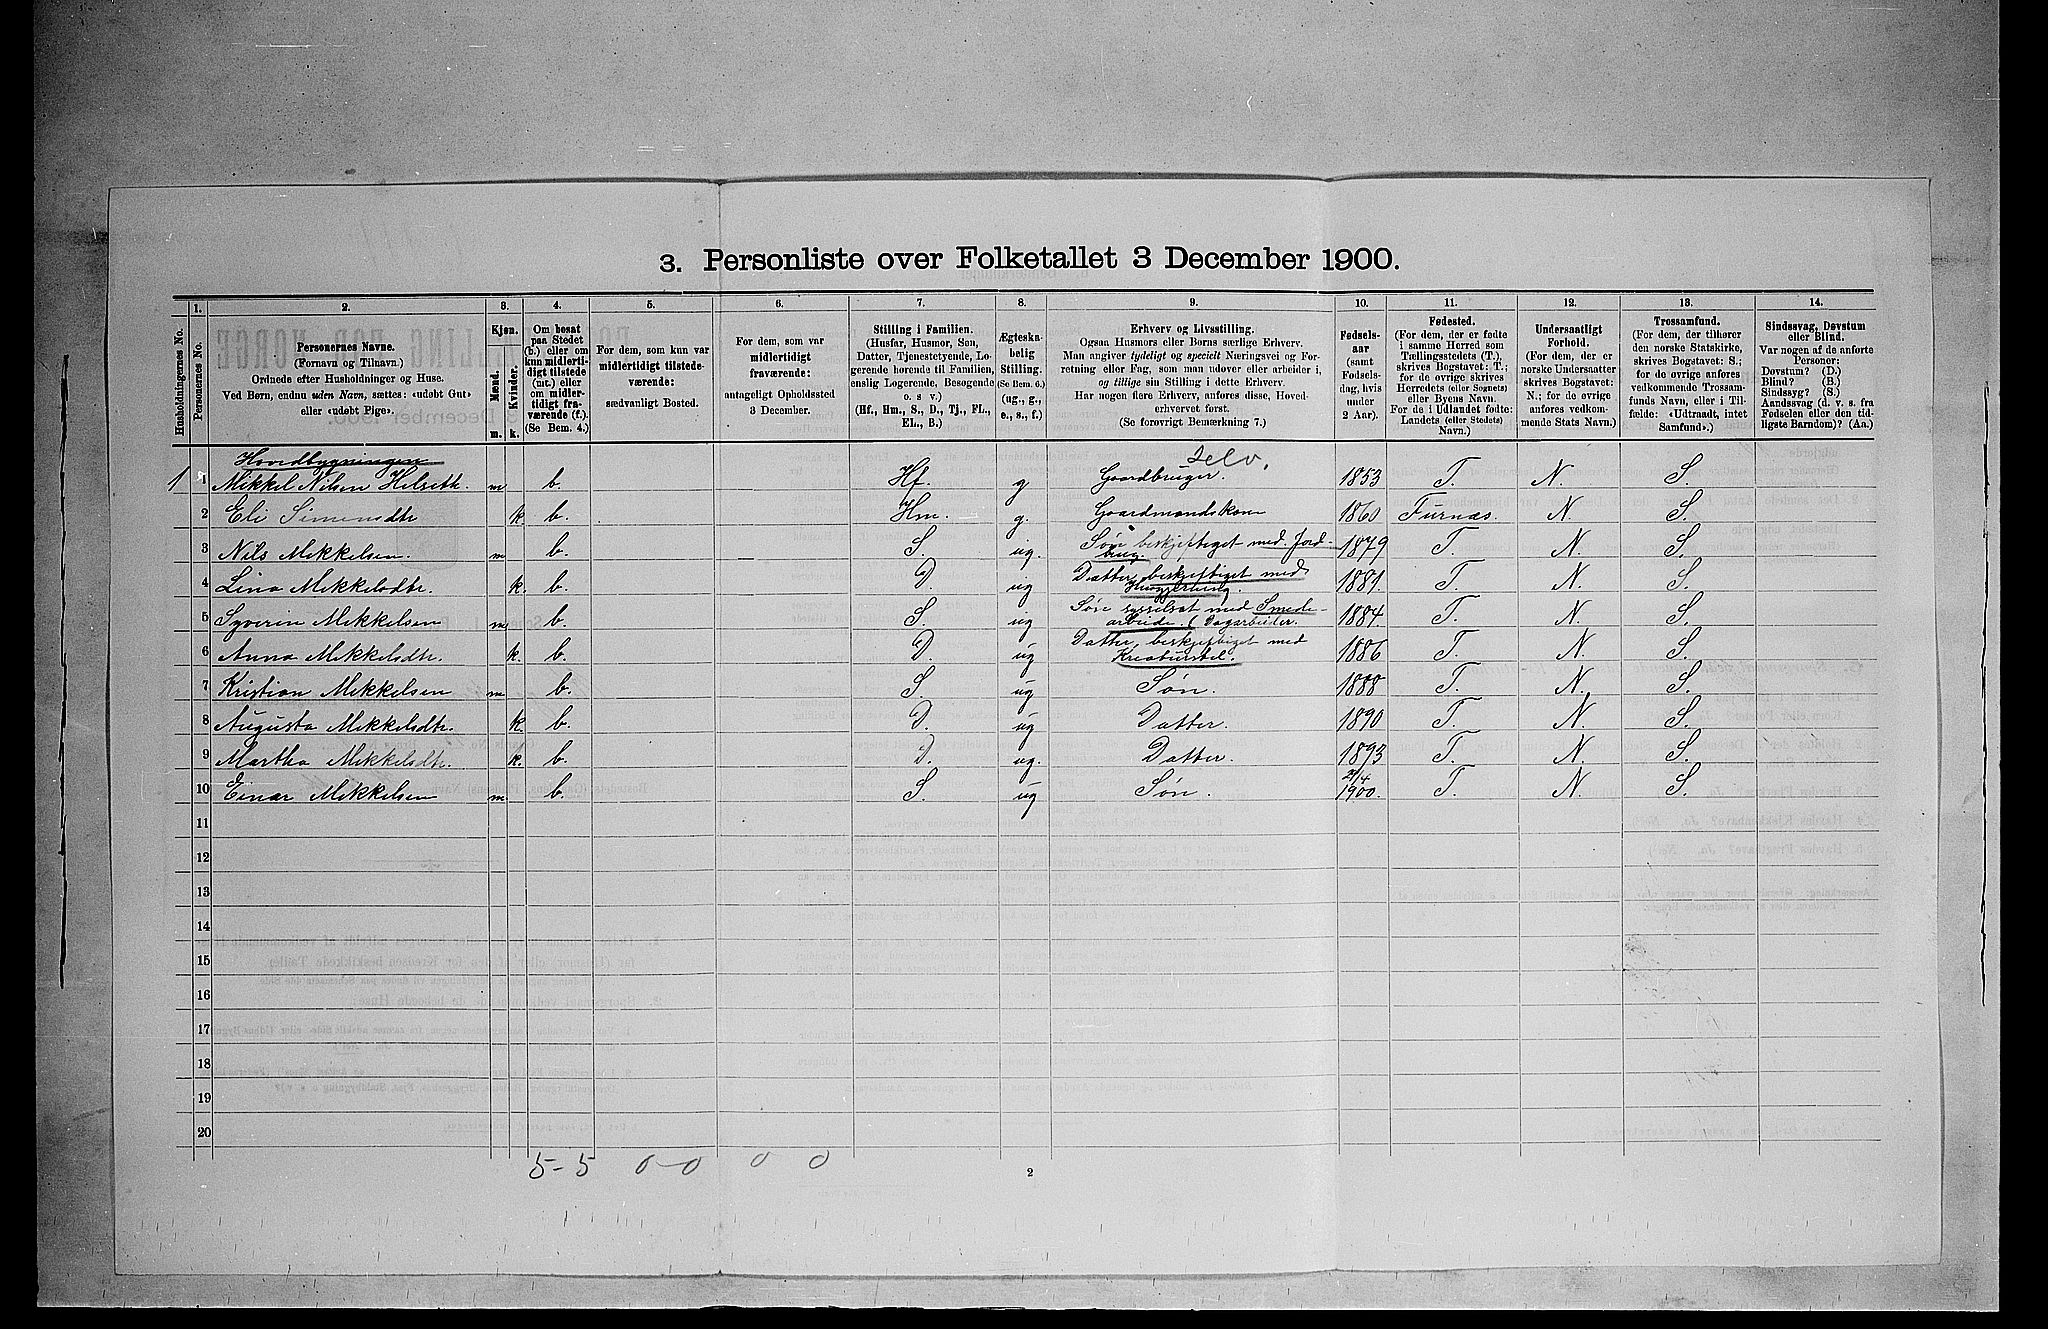 3. Personliste over Folketallet 3 December 1900.
1. 2. 3. 4. 5. 6. 7. 8. 9. 10. 11. 12. 13. 14.
Husholdningernes No.
Personernes No.
Personernes Navne.
(Fornavn og Tilnavn.)
Ordnede efter Husholdninger og Huse.
Ved Børn, endnu uden Navn, sættes: «udøbt Gut»
eller «udøbt Pige».
Kjøn.
Mænd.
Kvinder.
m. k.
Om bosat
paa Stedet
(b.) eller om
kun midlerti-
digt tilstede
(mt.) eller
om midler-
tidigt fra-
værende (f.).
(Se Bem. 4.)
For dem, som kun var
midlertidigt tilstede-
værende:
sædvanligt Bosted.
For dem, som var
midlertidigt
fraværende:
antageligt Opholdssted
3 December.
Stilling i Familien.
(Husfar, Husmor, Søn,
Datter, Tjenestetyende, Lo-
gerende hørende til Familien,
enslig Logerende, Besøgende
o. s. v.)
(Hf., Hm., S., D., Tj., FL.,
EL., B.)
Ægteska-
belig
Stilling.
(Se Bem. 6.)
(ug., g.,
e., s., f.)
Erhverv og Livsstilling.
Ogsaa Husmors eller Børns særlige Erhverv.
Man angiver tydeligt og specielt Næringsvei og For-
retning eller Fag, som man udøver eller arbeider i,
og tillige sin Stilling i dette Erhverv.
Har nogen flere Erhverv, anføres disse, Hoved-
erhvervet først.
(Se forøvrigt Bemærkning 7.)
Fødsels-
aar
(samt
Fødsels-
dag, hvis
under
2 Aar).
Fødested.
(For dem, der er fødte
i samme Herred som
Tællingsstedets (T.),
skrives Bogstavet: T.;
for de øvrige skrives
Herredets (eller Sognets)
eller Byens Navn.
For de i Udlandet fødte:
Landets (eller Stedets)
Navn.)
Undersaatligt
Forhold.
(For dem, der er
norske Undersaatter
skrives Bogstavet:
N.; for de øvrige
anføres vedkom-
mende Stats Navn.)
Trossamfund.
(For dem, der tilhører
den norske Statskirke,
skrives Bogstavet: S.;
for de øvrige anføres
vedkommende Trossam-
funds Navn, eller i Til-
fælde: «Udtraadt, intet
Samfund».)
Sindssvag, Døvstum
eller Blind.
Var nogen af de anførte
Personer:
Døvstum? (D.)
Blind? (B.)
Sindssyg? (S.)
Aandssvag (d. v. s. fra
Fødselen eller den tid-
ligste Barndom)? (Aa.)
Hovedbygningen
1 1 Mikkel Nilsen Helseth. m b. Hf. g Gaardbruger. selv. 1853 T. N. S.
2 Eli Simensdtr k. b. Hm. g. Gaardmandskone 1860 Furnæs. N. S.
3 Nils Mikkelsen. m b. S. ug. Søn beskjeftiget med Jord- 1879 T. N. S.
brug.
4 Lina Mikkelsdtr. k. b. D. ug Datter, beskjeftiget med 1881. T. N. S.
Husgjerning.
5 Syverin Mikkelsen m b. S. ug Søn sysselsat med Smede- 1884. T. N. S.
arbeide. (Dagarbeider.
6 Anna Mikkelsdtr. k. b. D. ug Datter, beskjeftiget med 1886 T. N. S.
Kreaturstel.
7 Kristian Mikkelsen m b. S. ug Søn. 1888 T. N. S.
8 Augusta Mikkelsdtr. k. b. D. ug Datter. 1890 T. N. S.
9 Martha Mikkelsdtr. k. b. D. ug. Datter. 1893 T. N. S.
10 Einar Mikkelsen m b. S. ug Søn. 1900. T. N. S.
11
12
13
14
15
16
17
18
19
20
5-5 0-0 0 0
2